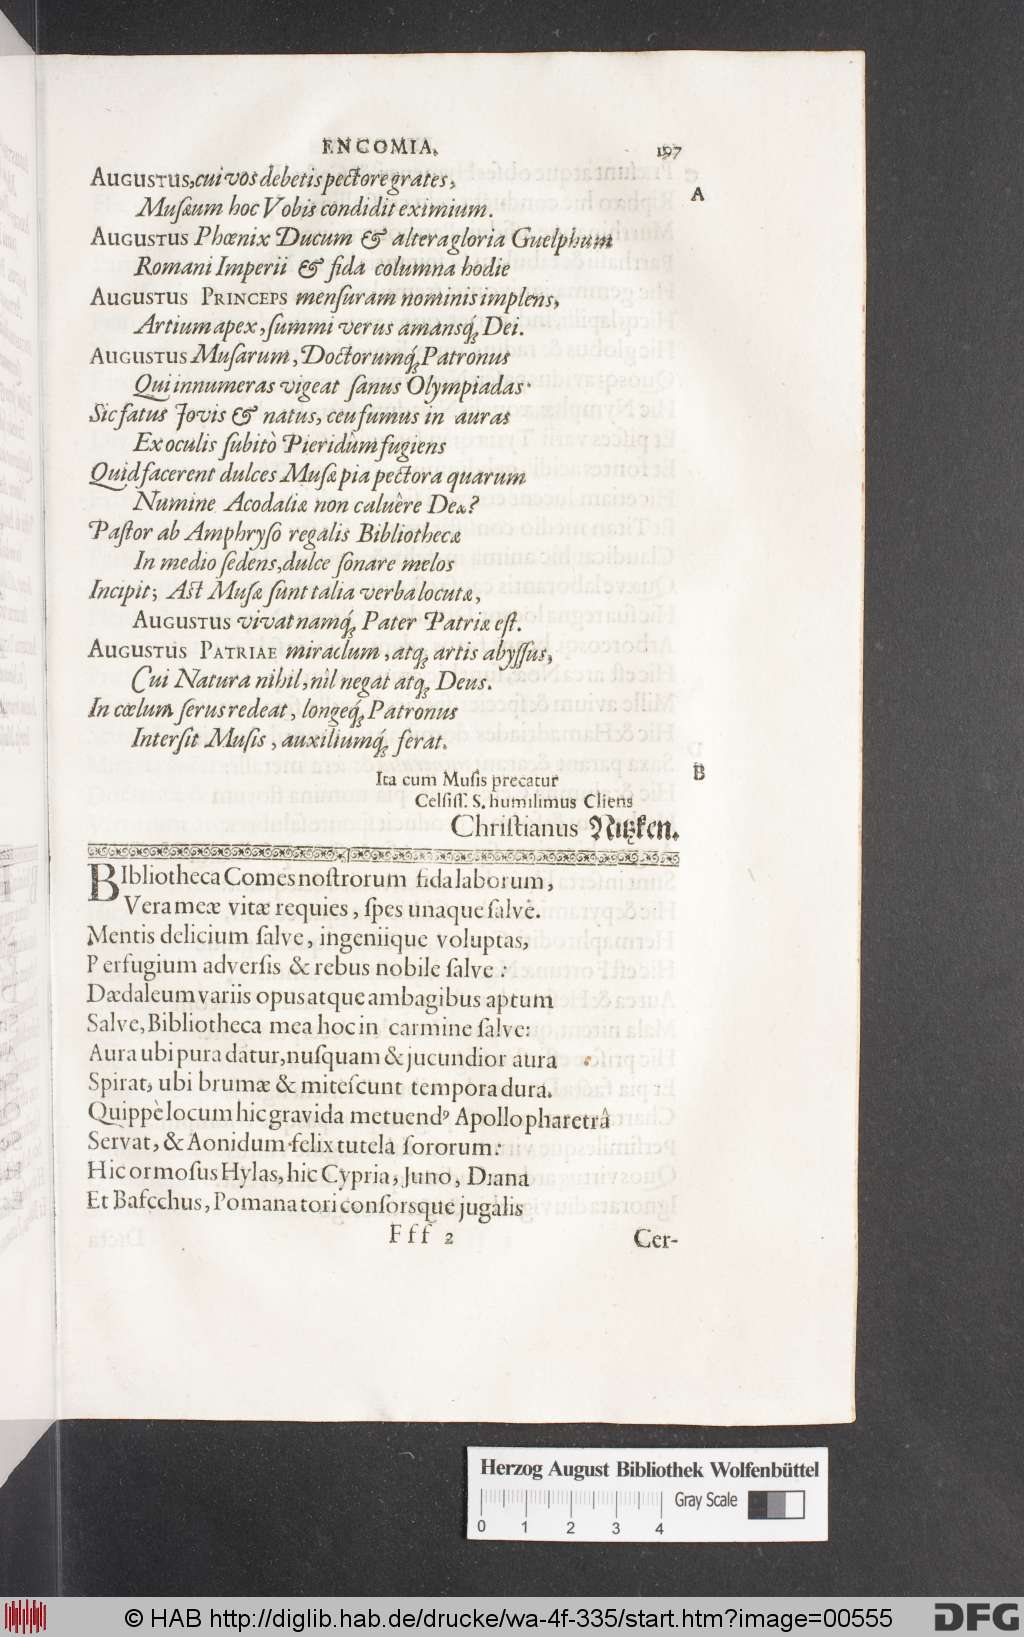 ENCOMIA. 197
A
AUGUSTUS, cui vos debetis pectore grates,
Musæum hoc Vobis condidit eximium.
AUGUSTUS Phœnix Ducum & altera gloria Guelphum
Romani Imperii & fida columna hodie
AUGUSTUS PRINCEPS mensuram nominis implens,
Artium apex, summi verus amansq́; Dei.
AUGUSTUS Musarum, Doctorumq́; Patronus
Qui innumeras vigeat sanus Olympiadas.
Sic fatus Jovis & natus, ceu fumus in auras
Ex oculis subitò Pieridum fugiens
Quid facerent dulces Musæ pia pectora quarum
Numine Acodaliæ non caluêre Deæ?
Pastor ab Amphryso regalis Bibliothecæ
In medio sedens, dulce sonare melos
Incipit; Ast Musæ sunt talia verba locutæ,
AUGUSTUS vivat namq́; Pater Patriæ est.
AUGUSTUS PATRIAE miraclum, atq; artis abyssus,
Cui Natura nihil, nil negat atq; Deus.
In cœlum serus redeat, longeq́; Patronus
Intersit Musis, auxiliumq́; ferat.
B
Ita cum Musis precatur
Celsiss. S. humilimus Cliens
Christianus Nitzken.
BIbliotheca Comes nostrorum fida laborum,
Vera meæ vitæ requies, spes unaque salve.
Mentis delicium salve, ingeniique voluptas,
Perfugium adversis & rebus nobile salve:
Dædaleum variis opus atque ambagibus aptum
Salve, Bibliotheca mea hoc in carmine salve:
Aura ubi pura datur, nusquam & jucundior aura
Spirat, ubi brumæ & mitescunt tempora dura.
Quippè locum hic gravida metuendꝰ Apollo pharetrâ
Servat, & Aonidum felix tutela sororum:
Hic ormosus Hylas, hic Cypria, Juno, Diana
Et Bafcchus, Pomana tori consorsque jugalis
Fff 2 Cer-
Herzog August Bibliothek Wolfenbüttel
Gray Scale
0 1 2 3 4
© HAB http://diglib.hab.de/drucke/wa-4f-335/start.htm?image=00555
DFG